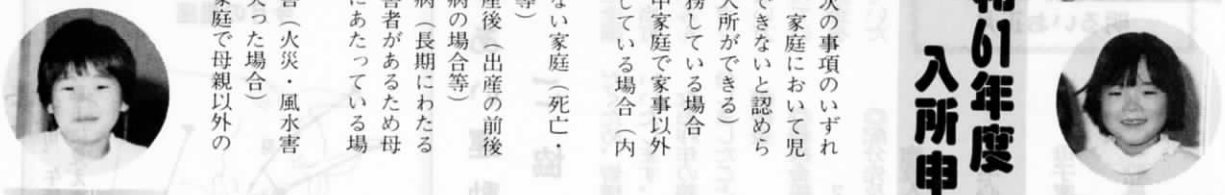 和61年度
入所申
次の事項のいずれ
家庭において児
できないと認めら
入所ができる）
務している場合
中家庭で家事以外
している場合（内
ない家庭（死亡・
等）
産後（出産の前後
病の場合等）
病（長期にわたる
害者があるため母
にあたっている場
害（火災・風水害
失った場合）
家庭で母親以外の